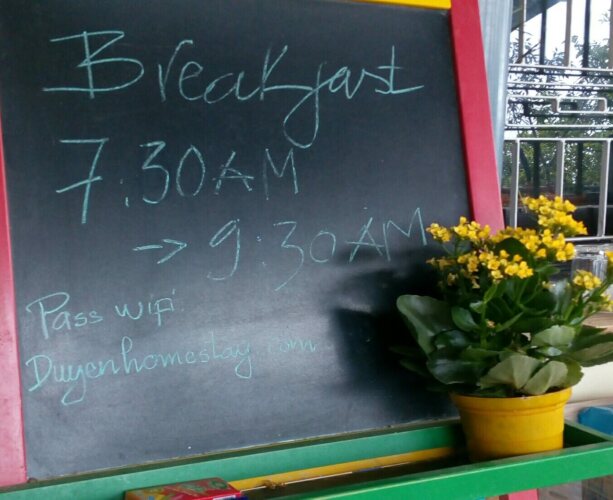 Breakfast
7:30 AM
→ 9:30 AM
Pass wifi:
Duyenhomestay.com